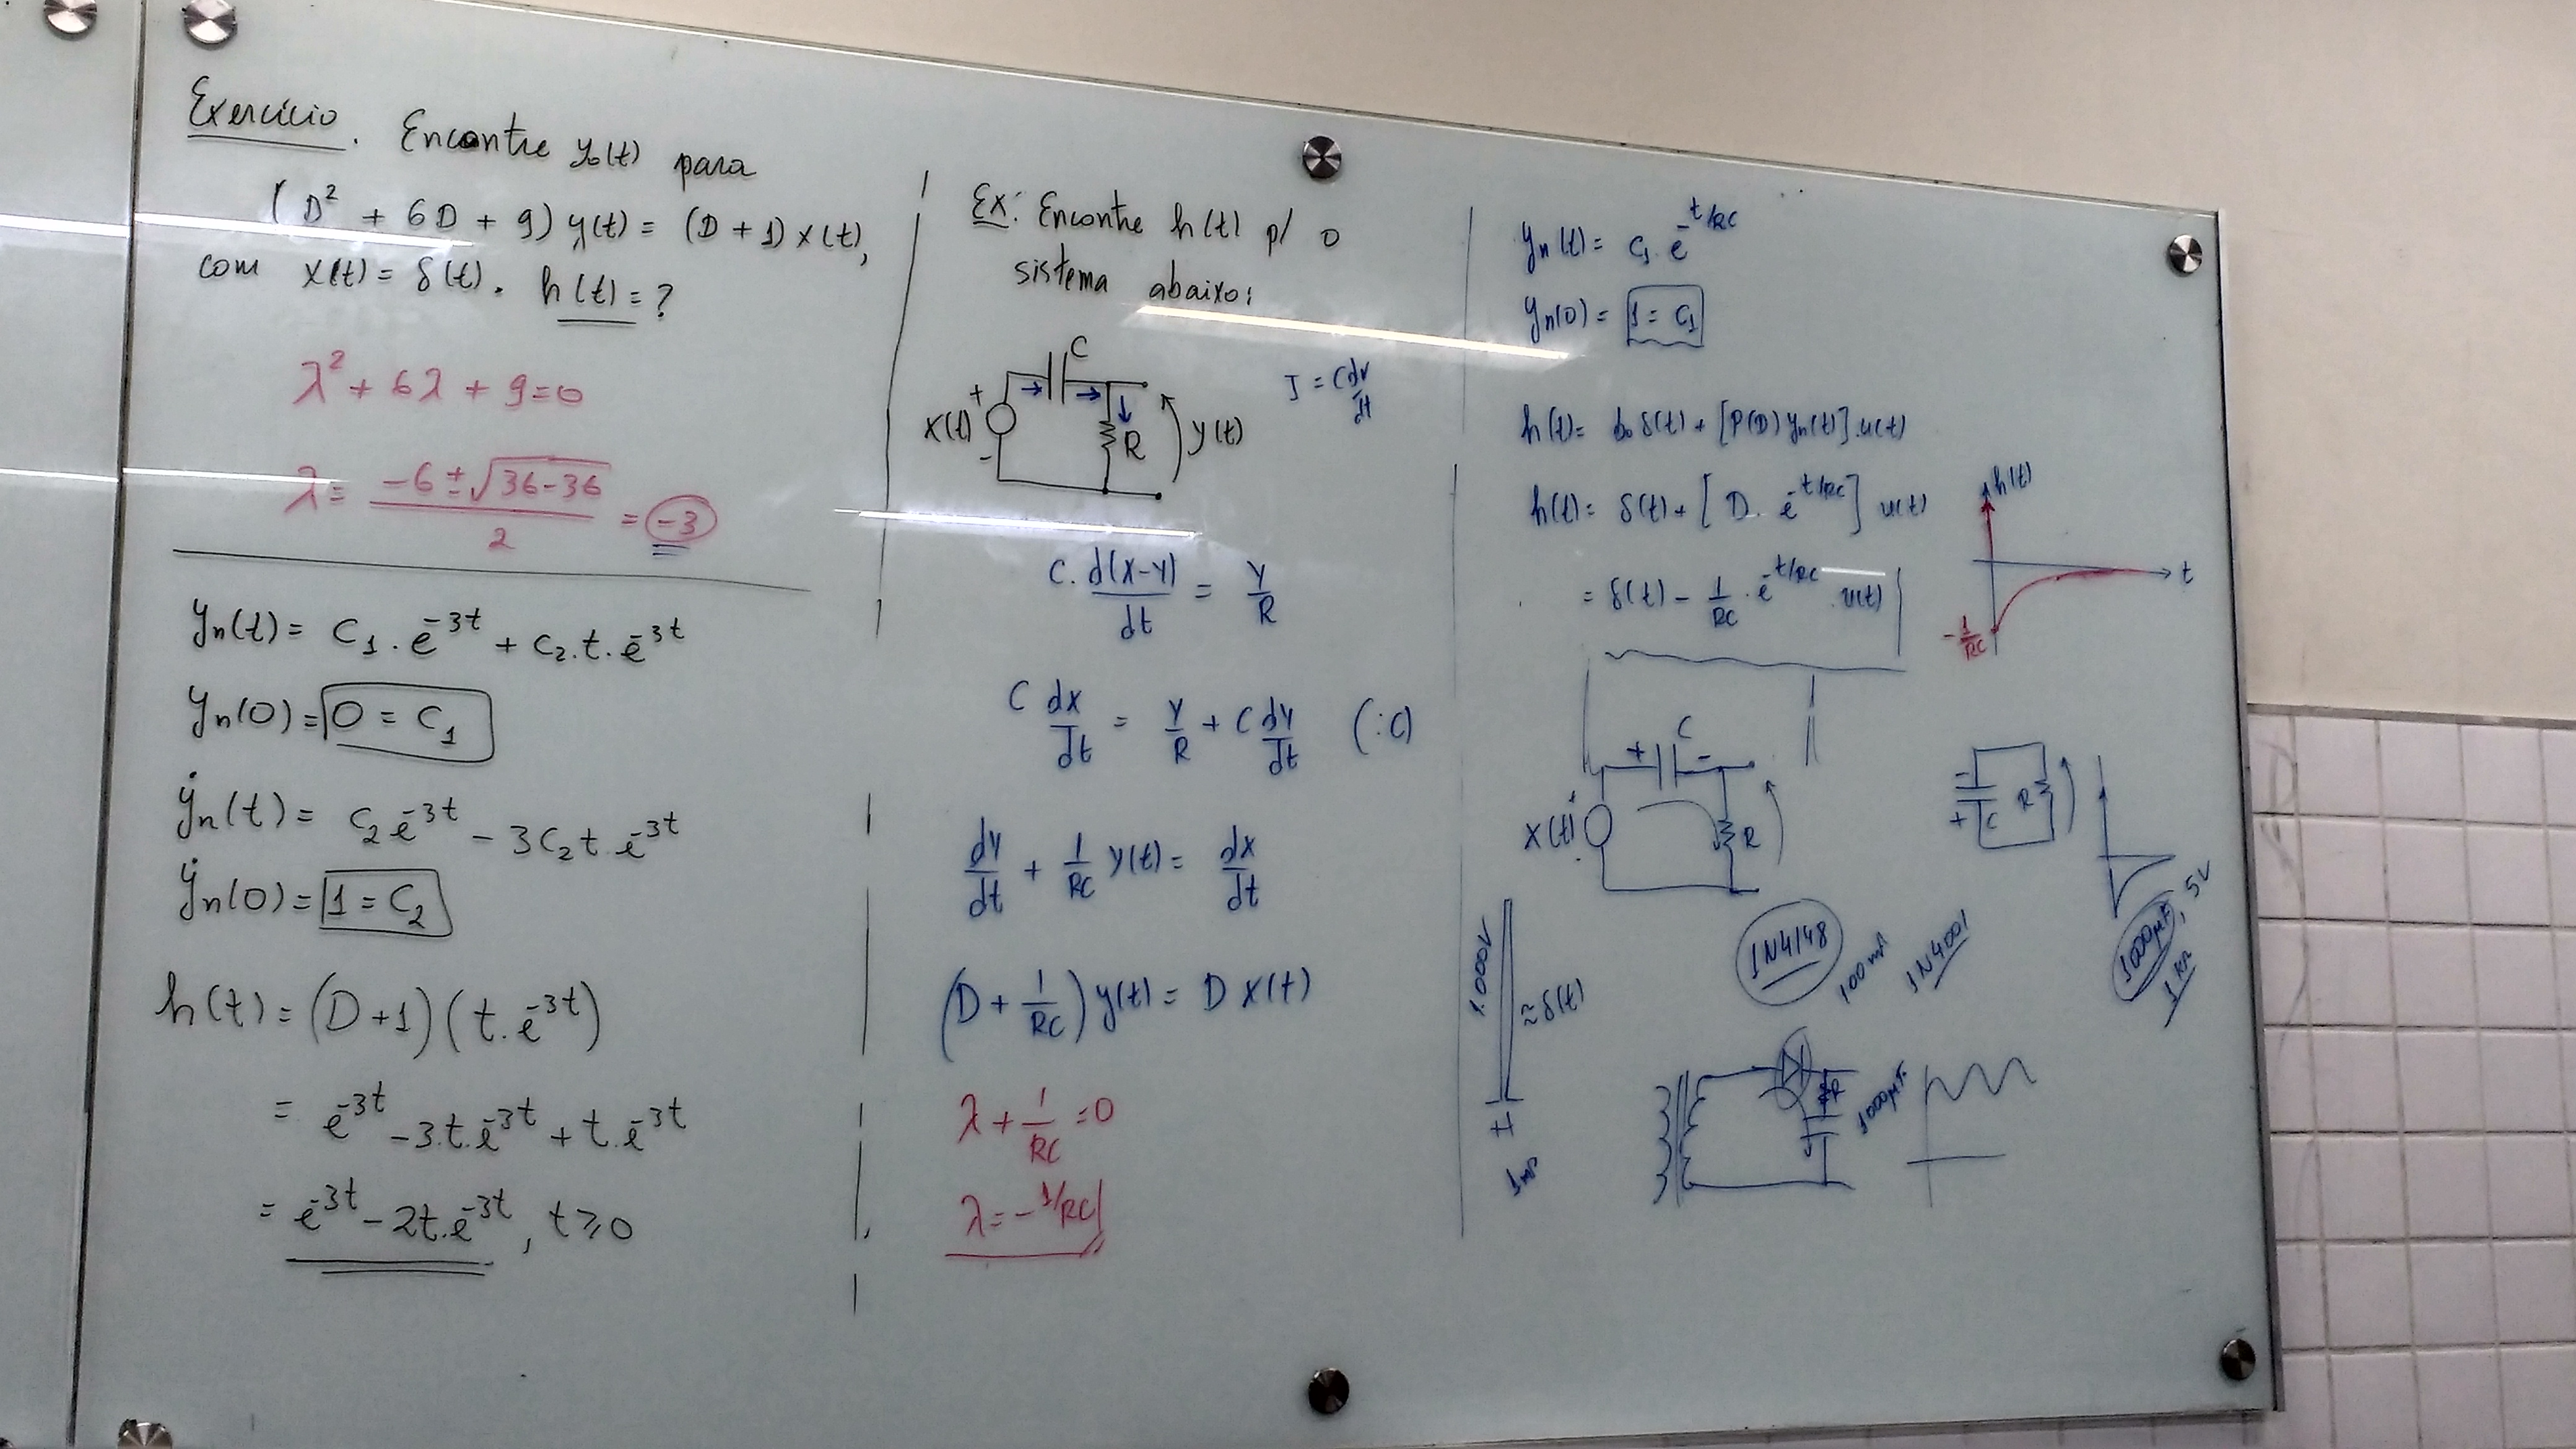 Exercício. Encontre y₀(t) para
(D² + 6D + 9) y(t) = (D + 1) x(t),
com x(t) = δ(t). h(t) = ?
λ² + 6λ + 9 = 0
λ = (-6 ± √(36-36))/2 = -3
yₙ(t) = C₁ . e^-3t + C₂.t. e^-3t
yₙ(0) = 0 = C₁
ẏₙ(t) = C₂ e^-3t - 3C₂ t. e^-3t
ẏₙ(0) = 1 = C₂
h(t) = (D+1) (t. e^-3t)
= e^-3t - 3.t. e^-3t + t. e^-3t
= e^-3t - 2t. e^-3t , t ≥ 0
Ex: Encontre h(t) p/ o
sistema abaixo:
C
I = C dv/dt
+
x(t)
-
R
y(t)
C. d(x-y)/dt = y/R
C dx/dt = y/R + C dy/dt (:C)
dy/dt + 1/RC y(t) = dx/dt
(D + 1/RC) y(t) = D x(t)
λ + 1/RC = 0
λ = -1/RC
yₙ(t) = C₁. e^-t/RC
yₙ(0) = 1 = C₁
h(t) = b₀ δ(t) + [P(D) yₙ(t)] .u(t)
h(t) = δ(t) + [D. e^-t/RC] u(t)
= δ(t) - 1/RC . e^-t/RC .u(t)
h(t)
t
-1/RC
+ C -
x(t)
+
R
-
+
C
R
1.000V
≈ δ(t)
1N4148
1N4001
1000μF, 5V
1000μF